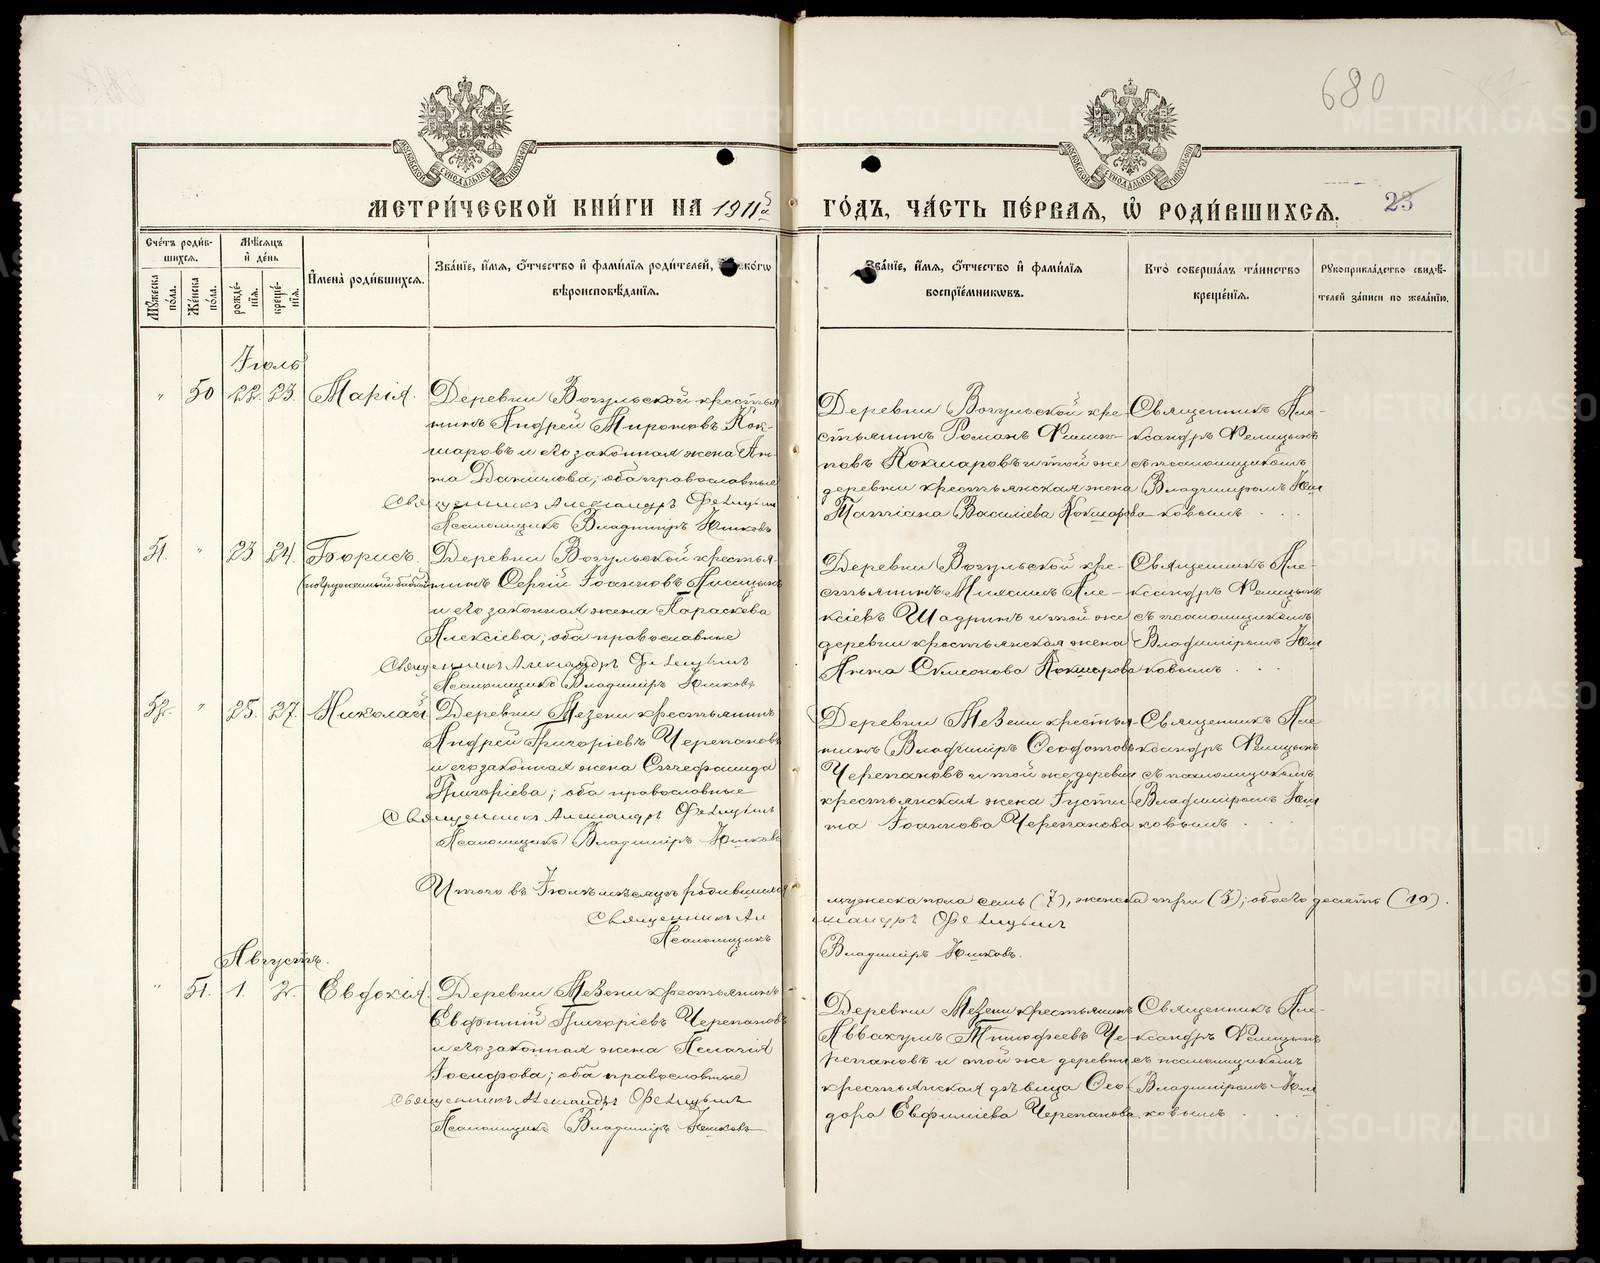 680
МЕТРИ́ЧЕСКОЙ КНИ́ГИ НА 1911й
ГО́ДЪ, ЧА́СТЬ ПЕ́РВАЯ, Ѡ҆ РОДИ́ВШИХСЯ.
23
Сче́тъ роди́в-
шихся.
Мѣ́сяцъ
и҆ де́нь
Мꙋ́жеска по́ла.
Же́нска по́ла.
рожде́-
нїя.
креще́-
нїя.
И҆мена̀ роди́вшихся.
Зва́нїе, и҆́мя, ѻ҆́тчество и҆ фами́лїя роди́телей,
вѣроисповѣ́данїя.
Зва́нїе, и҆́мя, ѻ҆́тчество и҆ фами́лїя
воспрїе́мникѡвъ.
Кто̀ соверша́лъ та́инство
креще́нїя.
Рꙋкоприкла́дство свидѣ́-
телей за́писи по жела́нїю.
Іюль
" 50 22. 23. Марія.
Деревни Вогульской крестья
нинъ Андрей Мироновъ Кок-
шаровъ и его законная жена Ан-
на Данилова; оба православные
Священникъ Александръ Фелицынъ
Псаломщикъ Владиміръ Юшковъ
Деревни Вогульской кре-
стьянинъ Романъ Филип-
повъ Кокшаровъ и той же
деревни крестьянская жена
Татіана Василіева Кокшарова
Священникъ Але-
ксандръ Фелицынъ
съ псаломщикомъ
Владиміромъ Юш
ковымъ . . .
51. " 23 24. Борисъ.
(погруженный бабкой)
Деревни Вогульской крестья-
нинъ Сергій Іоанновъ
и его законная жена Параскева
Алексіева; оба православные
Священникъ Александръ Фелицынъ
Псаломщикъ Владиміръ Юшковъ
Деревни Вогульской кре-
стьянинъ Але-
ксіевъ Шадринъ и той же
деревни крестьянская жена
Анна Симеонова Кокшарова
Священникъ Але-
ксандръ Фелицынъ
съ псаломщикомъ
Владиміромъ Юш
ковымъ . . .
52. " 25. 27. Николай
Деревни Мезени крестьянинъ
Андрей Григоріевъ Черепановъ
и его законная жена Стефанида
Григоріева; оба православные
Священникъ Александръ Фелицынъ
Псаломщикъ Владиміръ Юшковъ
Деревни Мезени крестья-
нинъ Владиміръ Ѳеодотовъ
Черепановъ и той же деревни
крестьянская жена Іусти-
на Іоаннова Черепанова
Священникъ Але
ксандръ Фелицынъ
съ псаломщикомъ
Владиміромъ Юш
ковымъ . . .
Итого въ Іюлѣ мѣсяцѣ родившихся
мужеска пола семь (7), женска три (3); обоего десять (10).
Священникъ Ал
ександръ Фелицынъ
Псаломщикъ
Владиміръ Юшковъ.
Августъ.
" 51. 1. 2. Евдокія.
Деревни Мезени крестьянинъ
Евфимій Григоріевъ Черепановъ
и его законная жена Пелагія
Іосифова; оба православные
Священникъ Александръ Фелицынъ
Псаломщикъ Владиміръ Юшковъ
Деревни Мезени крестьянинъ
Аввакумъ Тимофеевъ Че-
репановъ и той же деревни
крестьянская дѣвица Ѳео
дора Евфиміева Черепанова
Священникъ Але-
ксандръ Фелицынъ
съ псаломщикомъ
Владиміромъ Юш
ковымъ . . .
METRIKI.GASO-URAL.RU